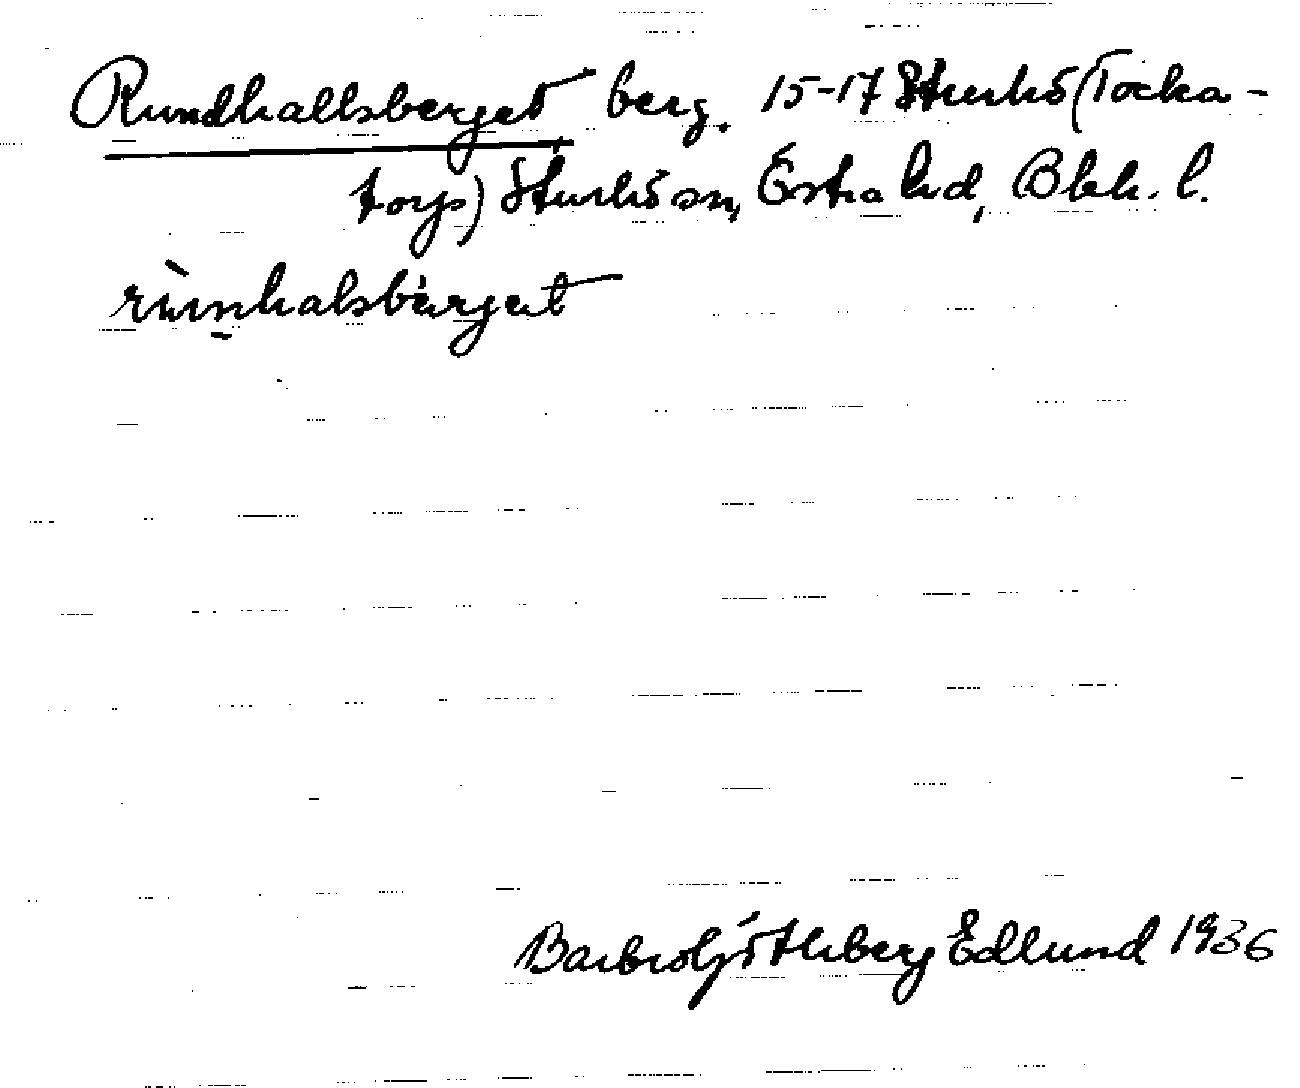 Rundhallsberget berg. 15-17 Sturkö (Tocka-
torp) Sturkö sn, Östra hd, Blek. l.
rùnhalsbärget
Barbro Göthberg Edlund 1936